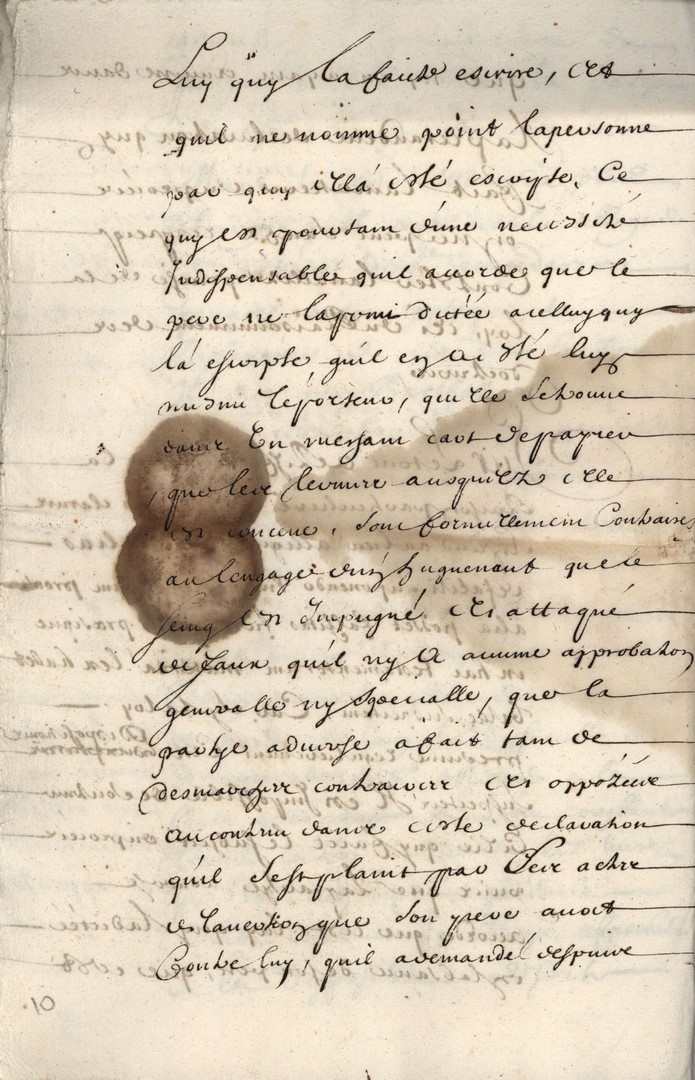 Luy quy la faicte escrire, et
quil ne nomme point lapersonne
par quy ella esté escripte, Ce
quy est pourtam dune necessité
Indispensable quil accorde que le
pere ne lapoint dictée acelluy quy
lá escripte, quil en a esté luy
mesme le porteur, quelle se trouve
dans Un meschant cart depapier
que les termes ausquelz elle
est conceue, sont formellement Contraires
au lengage dun huguenaut que le
seing est Impugné et attaqué
de faux quil ny a aucune approbation
generalle ny specialle, que la
partye adverse a fait tant de
desmarches contraires et oppozées
au contenu dans cette declaration
quil sest plaint par des actes
de laversion que son pere avoit
Contre luy, quil a demandé
10